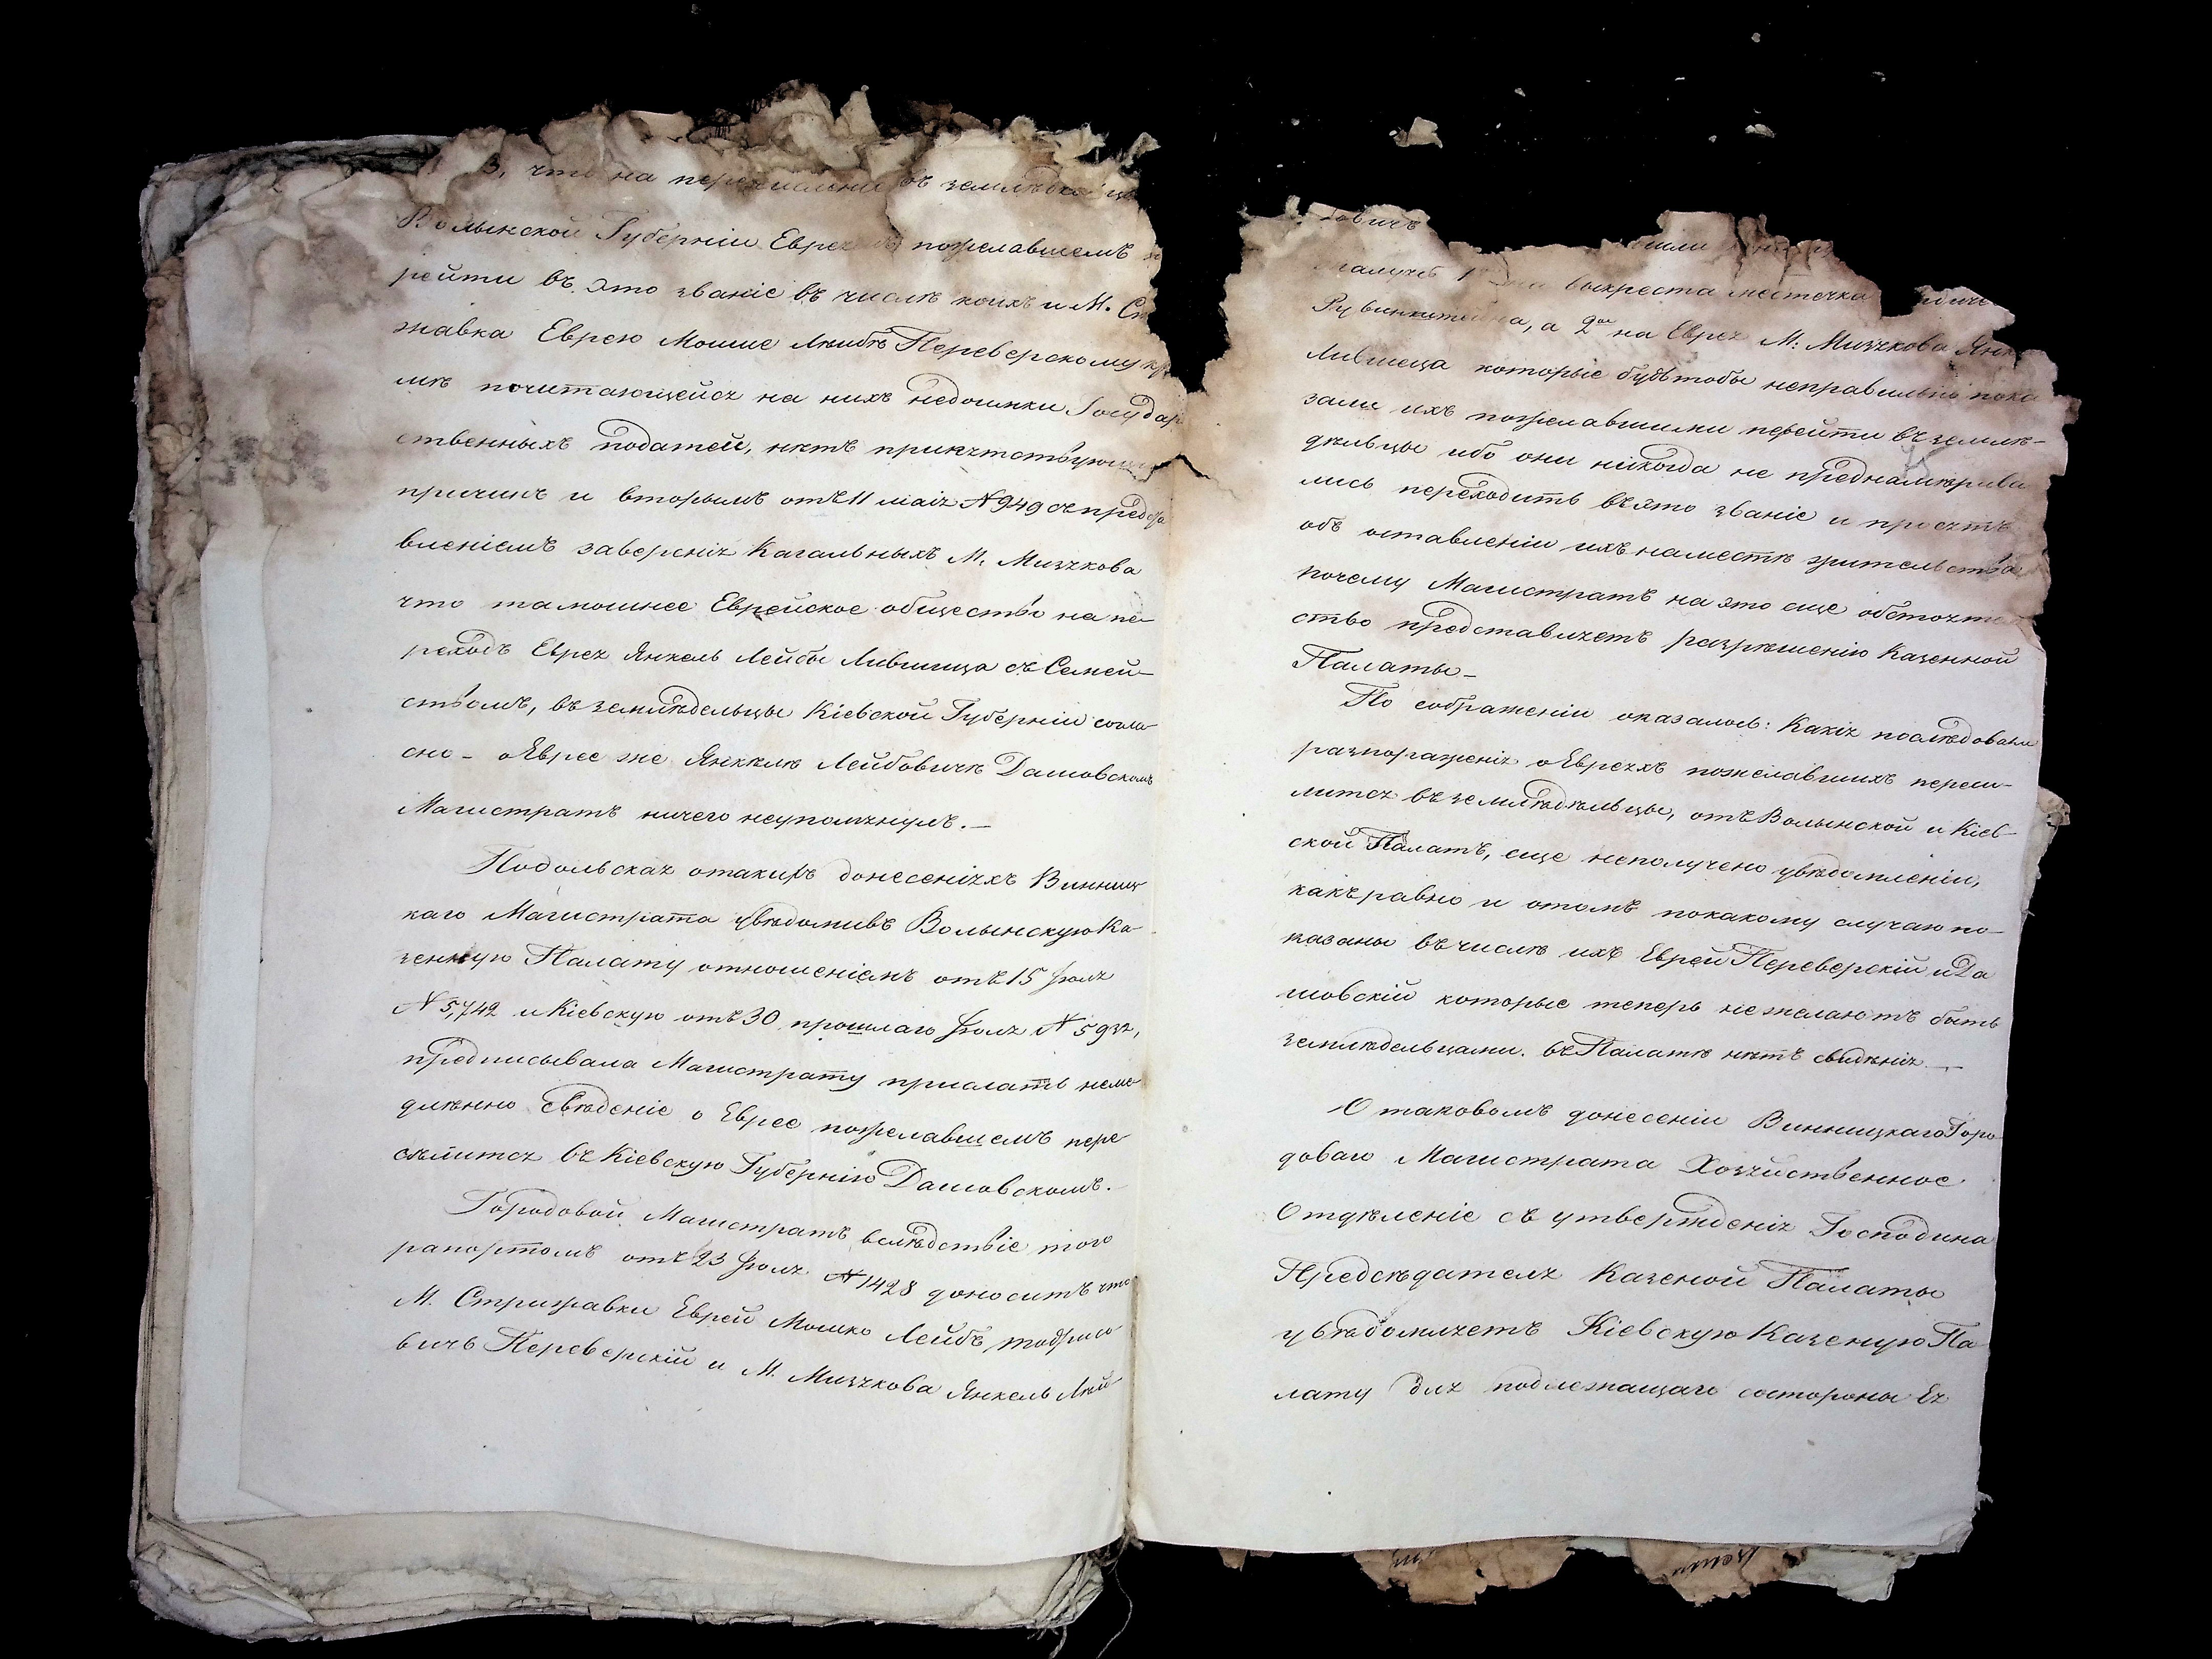 3, что на перечисление въ земледельцы
Волынской Губерніи Еврея пожелавшемъ
рейти въ это званіе въ числѣ коихъ и М. Ст
жавка Еврею Мошке Лѣибѣ Переверскому кр
мѣ почитающейся на нихъ недоимки Государ
ственныхъ податей, нѣтъ припятствующихъ
причинъ и вторымъ отъ 11 маія № 949 съ предста
вленіемъ заверенія Кагальныхъ М. Мизякова
что тамошнее Еврейское общество на пе-
реходъ Еврея Янкель Лейбы Лившица съ Семей-
ствомъ, въ земледельцы Кіевской Губерніи согла
сно - о Еврее же Янкѣлѣ Лейбовичѣ Дашовскомъ
Магистратъ ничего неупомянулъ. —
Подольская отакихъ донесеніяхъ Винниц
каго Магистрата увѣдомивъ Волынскую Ка-
зенную Палату отношеніемъ отъ 15 Іюля
№ 5,742 и Кіевскую отъ 30 прошлаго Іюля № 5932,
предписывала Магистрату прислать неме
длѣнно свѣденіе о Еврее пожелавшемъ пере-
сѣлится въ Кіевскую Губернію Дашовскомъ.
Городовой Магистратъ вслѣдствіе того
рапортомъ отъ 23 Іюля № 1428 доноситъ что
М. Стрижавки Еврей Мошко Лейбъ
вичъ Переверскій и М. Мизякова Янкель Лѣй-
довичъ
выкреста местечка
Рувинштейна, а 2ое на Еврея М: Мизякова Янк
Лившеца которые будьтобы неправильно пока
зали ихъ пожелавшими перейти въ землѣ-
дѣльцы ибо они никогда не преднамѣрива
лись переходить въ это званіе и просятъ
объ оставленіи ихъ наместѣ жительства
почему Магистратъ на это еще обстоят
ство представляетъ разрѣшенію Казенной
Палаты -
По сображеніи оказалось: Какія послѣдовали
разпоряженія о Евреяхъ пожелавшихъ пересе-
литса въ землѣдѣльцы, отъ Волынской и Кіев-
ской Палатъ, еще неполучено увѣдомленіи,
какъ равно и отомъ покакому случаю по-
казаны въ числѣ ихъ Евреи Переверскій и Да
шовскій которые теперь нежелаютъ быть
землѣдельцами. въ Палатѣ нѣтъ свидѣнія. —
О таковомъ донесеніи Винницкаго Горо
доваго Магистрата Хозяйственное
Отдѣленіе съ утвержденія Господина
Предсѣдателя Казеной Палаты
увѣдомляетъ Кіевскую Казеную Па
лату для подлежащаго состороны Ея